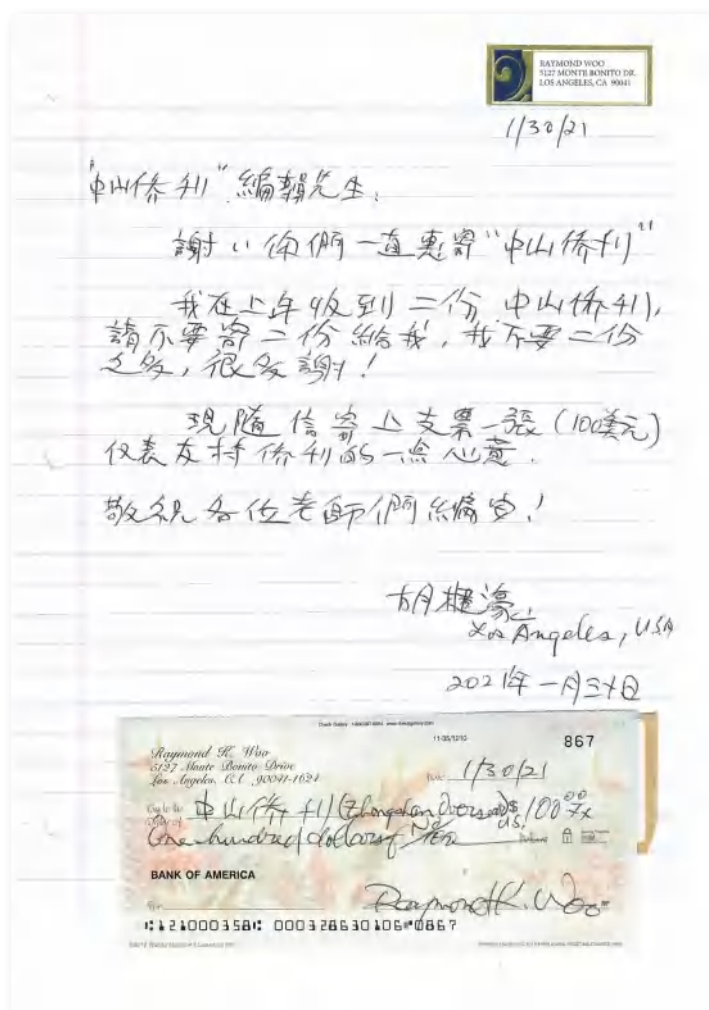 RAYMOND WOO
5127 MONTE BONITO DR.
LOS ANGELES, CA 90041
1/30/21
"中山侨刊" 編輯先生:
謝〻你們一直惠寄"中山侨刊"
我在上年收到二份中山侨刊,
請不要寄二份給我, 我不要二份
之多, 很多謝!
現隨信寄上支票一張 (100美元)
仅表支持侨刊的一点心意.
敬祝各位老師們編安!
胡
Los Angeles, USA
2021年一月三十日
867
Raymond K. Woo
5127 Monte Bonito Drive
Los Angeles, CA 90041-1624
Date 1/30/21
中山侨刊 (Zhongshan Overseas) $ 100.00
U.S.
One hundred dollars
BANK OF AMERICA
Raymond K. Woo
⑆121000358⑆ 000328630106⑈0867